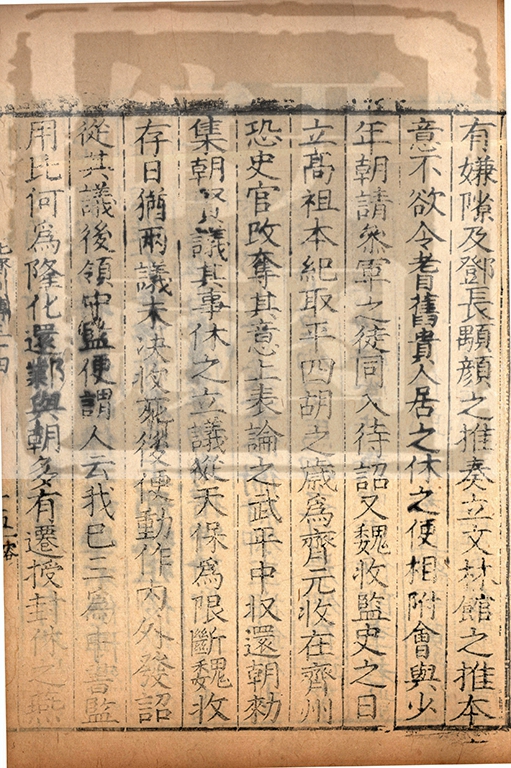 有嫌隙及鄧長顒顔之推奏立文林館之推本
意不欲令耆舊貴人居之休之便相附會與少
年朝請叅軍之徒同入待詔又魏收監史之日
立髙祖本紀取平四胡之歳爲齊元收在齊州
恐史官改奪其意上表論之武平中收還朝勑
集朝賢議其事休之立議從天保爲限斷魏收
存日猶兩議未决收死後便動作内外發詔
從其議後領中監便謂人云我已三爲中書監
用此何爲隆化還鄴與朝多有遷授封休之燕